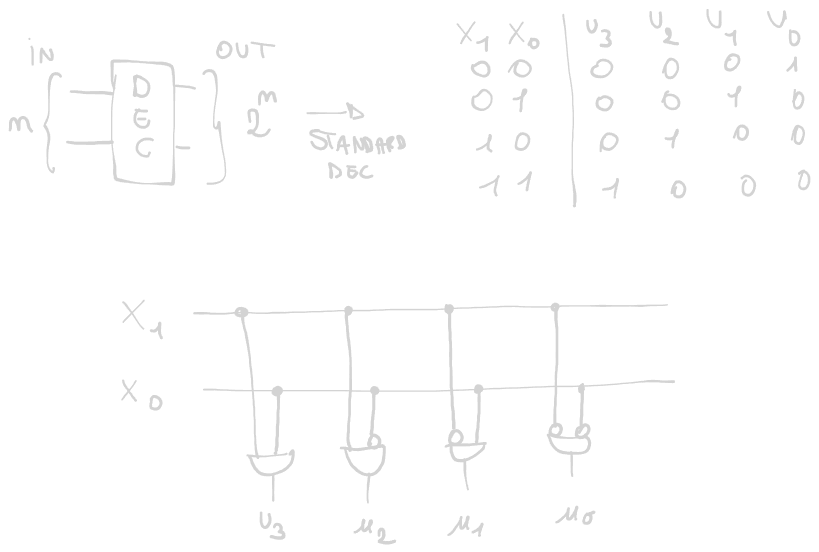 IN OUT
m DEC 2^m
STANDARD
DEC
X1 X0 U3 U2 U1 U0
0 0 0 0 0 1
0 1 0 0 1 0
1 0 0 1 0 0
1 1 1 0 0 0
X1
X0
U3 μ2 μ1 μ0